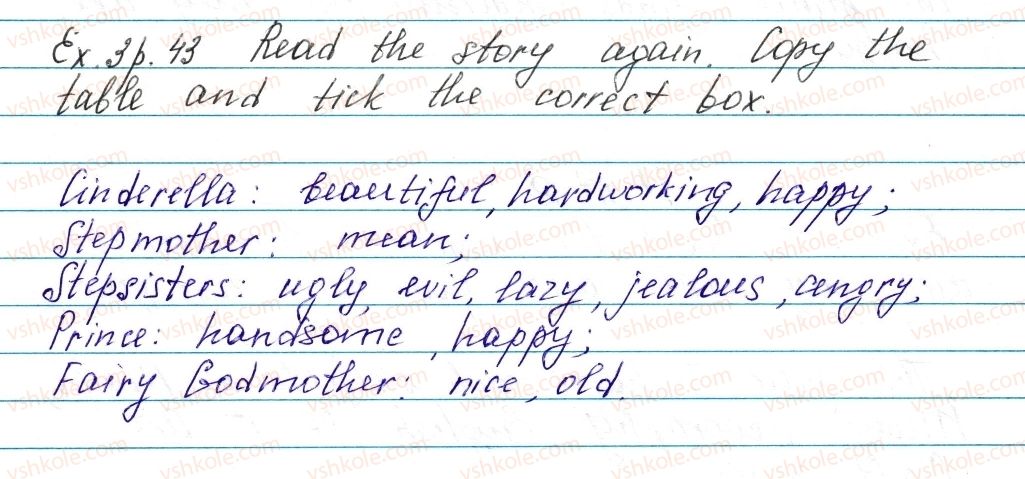 Ex. 3p. 43 Read the story again. Copy the
table and tick the correct box.
Cinderella: beautiful, hardworking, happy;
Stepmother: mean;
Stepsisters: ugly, evil, lazy, jealous, angry;
Prince: handsome, happy;
Fairy Godmother: nice, old.